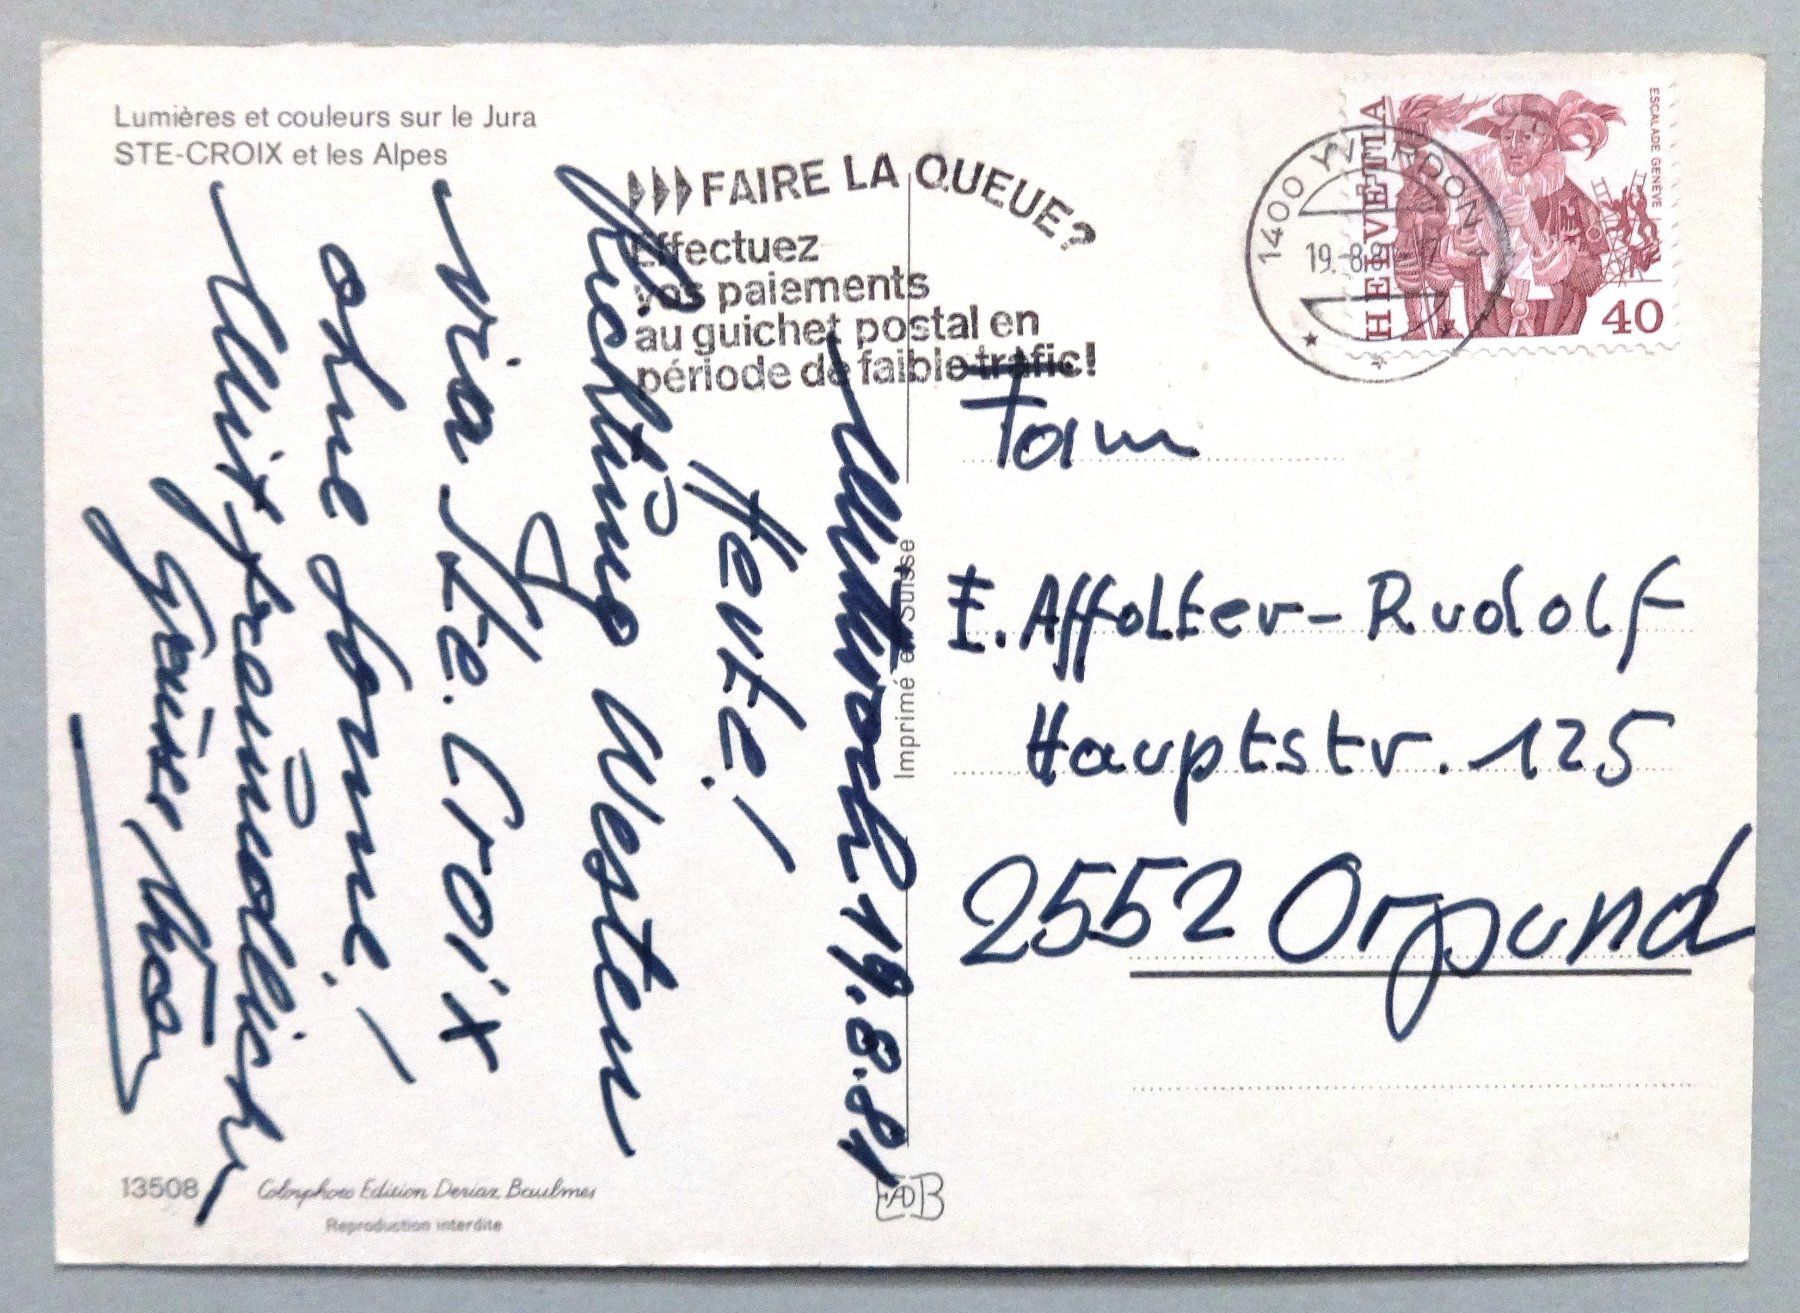 Lumières et couleurs sur le Jura
STE-CROIX et les Alpes
FAIRE LA QUEUE?
Effectuez
vos paiements
au guichet postal en
période de faible trafic!
1400 YVERDON 1
19.-8.81-17
HELVETIA
ESCALADE GENÈVE
40
19.8.81
Heute!
Richtung Westen
via Ste. Croix
ohne Sonne!
Mit freundlichen
Grüsse,
Fam
E. Affolter-Rudolf
Hauptstr. 125
2552 Orpund
Imprimé en Suisse
13508
Colorphoto Edition Deriaz, Baulmes
Reproduction interdite
EADB